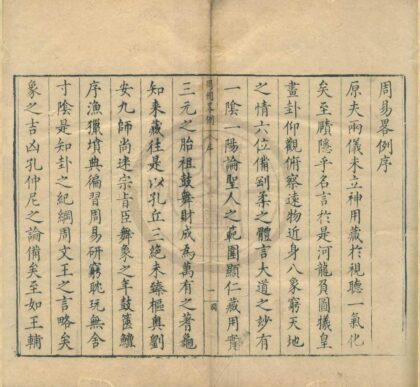 周易畧例序
原夫兩儀未立神用藏於視聽一氣化
矣至賾隱乎名言於是河龍負圖犧皇
畫卦仰觀俯察遠物近身八象窮天地
之情六位備剛柔之體言大道之妙有
一陰一陽論聖人之範圍顯仁藏用寔
三元之胎祖鼓舞財成為萬有之蓍龜
知来藏往是以孔丘三絕未臻樞奧劉
安九師尚迷宗旨臣舞象之年鼓篋鱣
序漁獵墳典偏習周易研窮耽玩無舍
寸陰是知卦之紀綱周文王之言略矣
象之吉凶孔仲尼之論備矣至如王輔